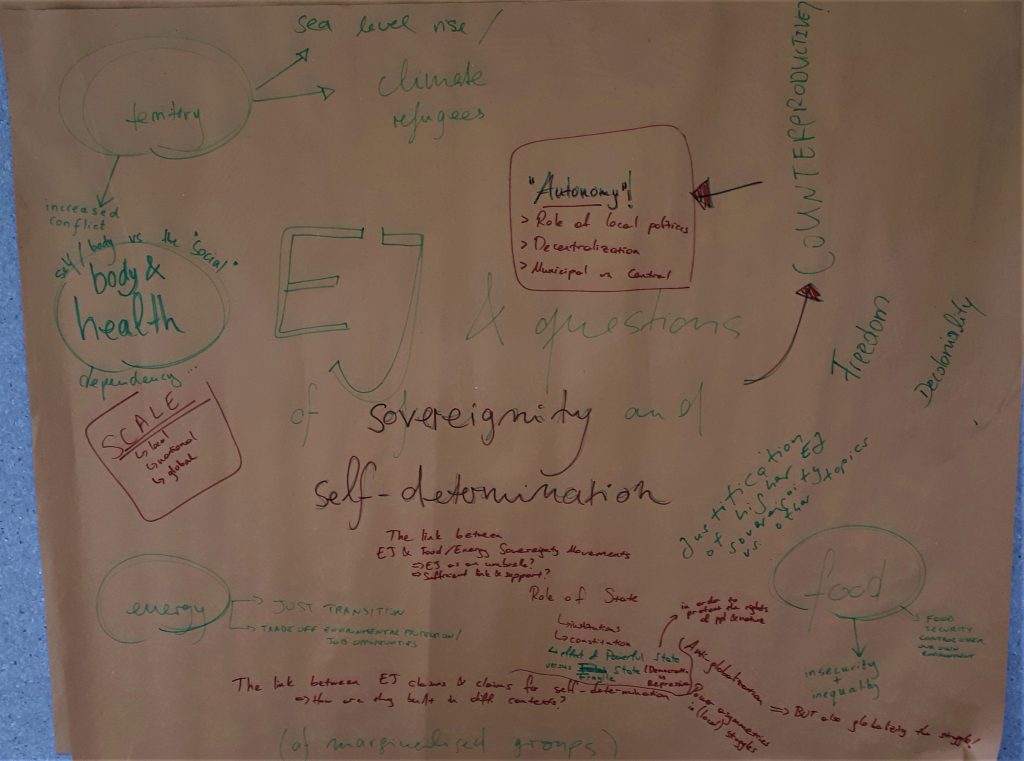 sea level rise /
climate
refugees
territory
increased
conflict
self/body vs the "social"
body &
health
dependency ...
SCALE
↳ local
↳ national
↳ global
EJ & questions
of sovereignity and
self-determination
"Autonomy"!
> Role of local politics
> Decentralization
> Municipal vs Central
COUNTERPRODUCTIVE?
Freedom
Decoloniality
Justification
higher EJ
of sovereignity topics
vs. other
The link between
EJ & Food/Energy Sovereignty Movements
⇒ EJ as an umbrella?
⇒ Sufficient link & support?
energy
→ JUST TRANSITION
→ TRADE OFF ENVIRONMENTAL PROTECTION/
JOB OPPORTUNITIES
Role of State
↳ institutions
↳ constitution
↳ effect of Powerful State
versus Fragile State (Democratic
vs
Repressive)
in order to
protect the rights
of ppl & nature
Anti-globalization ⇒ BUT also globalizing the struggle!
Power asymmetries
in (local) struggles
The link between EJ claims & claims for self-determination
⇒ How are they built in diff. contexts?
(of marginalised groups)
food
FOOD
SECURITY
CONTROL OVER
OUR OWN
ENVIRONMENT
insecurity
+
inequality